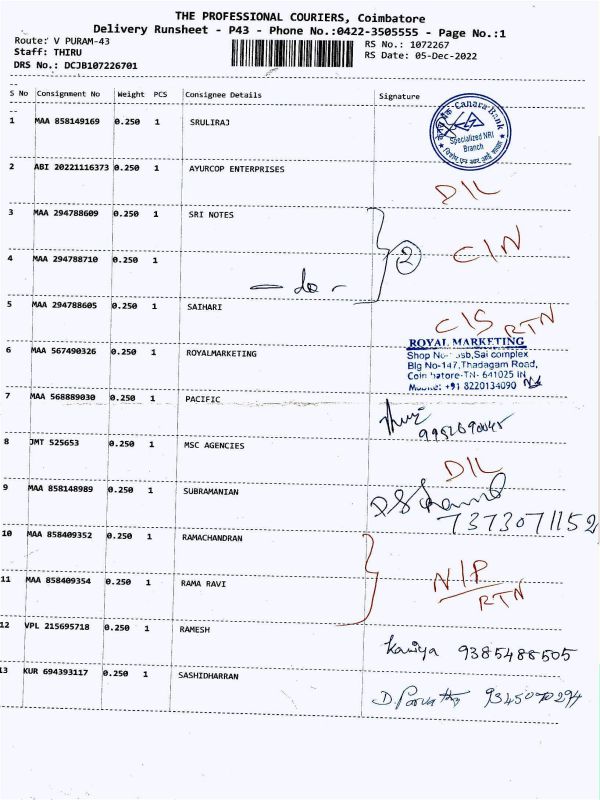 THE PROFESSIONAL COURIERS, Coimbatore
Delivery Runsheet - P43 - Phone No.:0422-3505555 - Page No.:1
Route: V PURAM-43
RS No.: 1072267
Staff: THIRU
RS Date: 05-Dec-2022
DRS No.: DCJB107226701
S No Consignment No Weight PCS Consignee Details Signature
1 MAA 858149169 0.250 1 SRULIRAJ
Canara Bank
Specialized NRI
Branch
2 ABI 20221116373 0.250 1 AYURCOP ENTERPRISES
D/L
3 MAA 294788609 0.250 1 SRI NOTES
2 C/N
4 MAA 294788710 0.250 1
- do -
5 MAA 294788605 0.250 1 SAIHARI
C/S RTN
6 MAA 567490326 0.250 1 ROYALMARKETING
ROYAL MARKETING
Shop No- sb,Sai complex
Blg No-147,Thadagam Road,
Coimbatore-TN- 641025 IN
Mobile: +91 8220134090
7 MAA 568889030 0.250 1 PACIFIC
8 JMT 525653 0.250 1 MSC AGENCIES
D/L
9 MAA 858148989 0.250 1 SUBRAMANIAN
7373071152
10 MAA 858409352 0.250 1 RAMACHANDRAN
N/P
RTN
11 MAA 858409354 0.250 1 RAMA RAVI
12 VPL 215695718 0.250 1 RAMESH
9385488505
13 KUR 694393117 0.250 1 SASHIDHARRAN